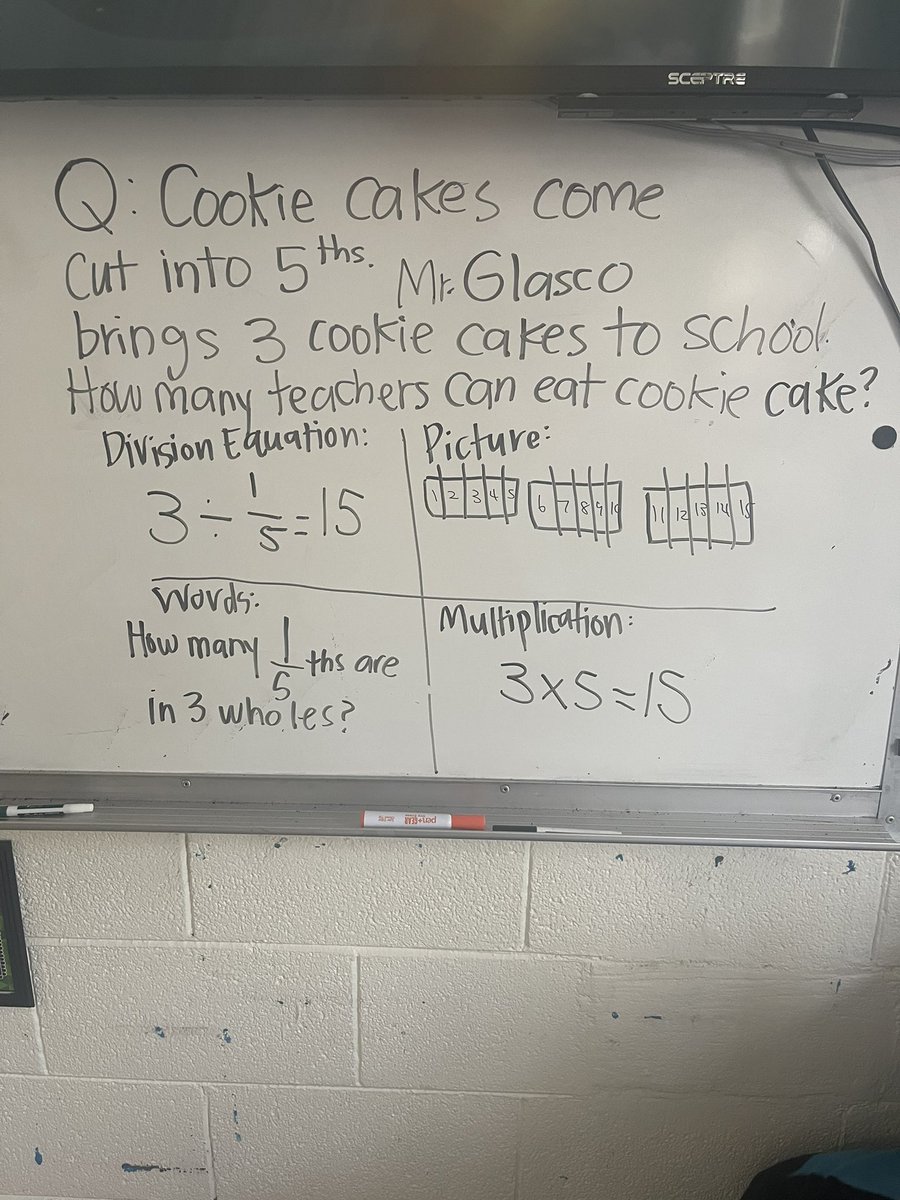 SCEPTRE
Q: Cookie cakes come
cut into 5ths. Mr. Glasco
brings 3 cookie cakes to school.
How many teachers can eat cookie cake?
Division Equation:
3 ÷ 1/5 = 15
Picture:
1 2 3 4 5 6 7 8 9 10 11 12 13 14 15
Words:
How many 1/5 ths are
in 3 wholes?
Multiplication:
3 x 5 = 15
pen+GEAR